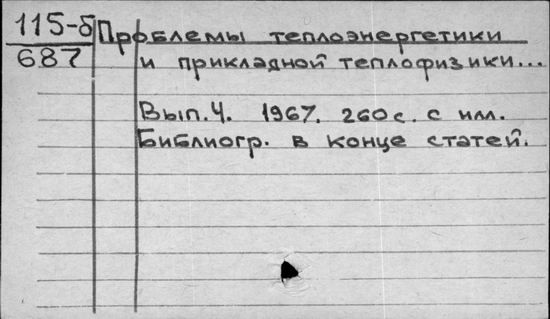 115-б
687
Проблемы теплоэнергетики
и прикладной теплофизики...
Вып.4. 1967. 260с. с илл.
Библиогр. в конце статей.